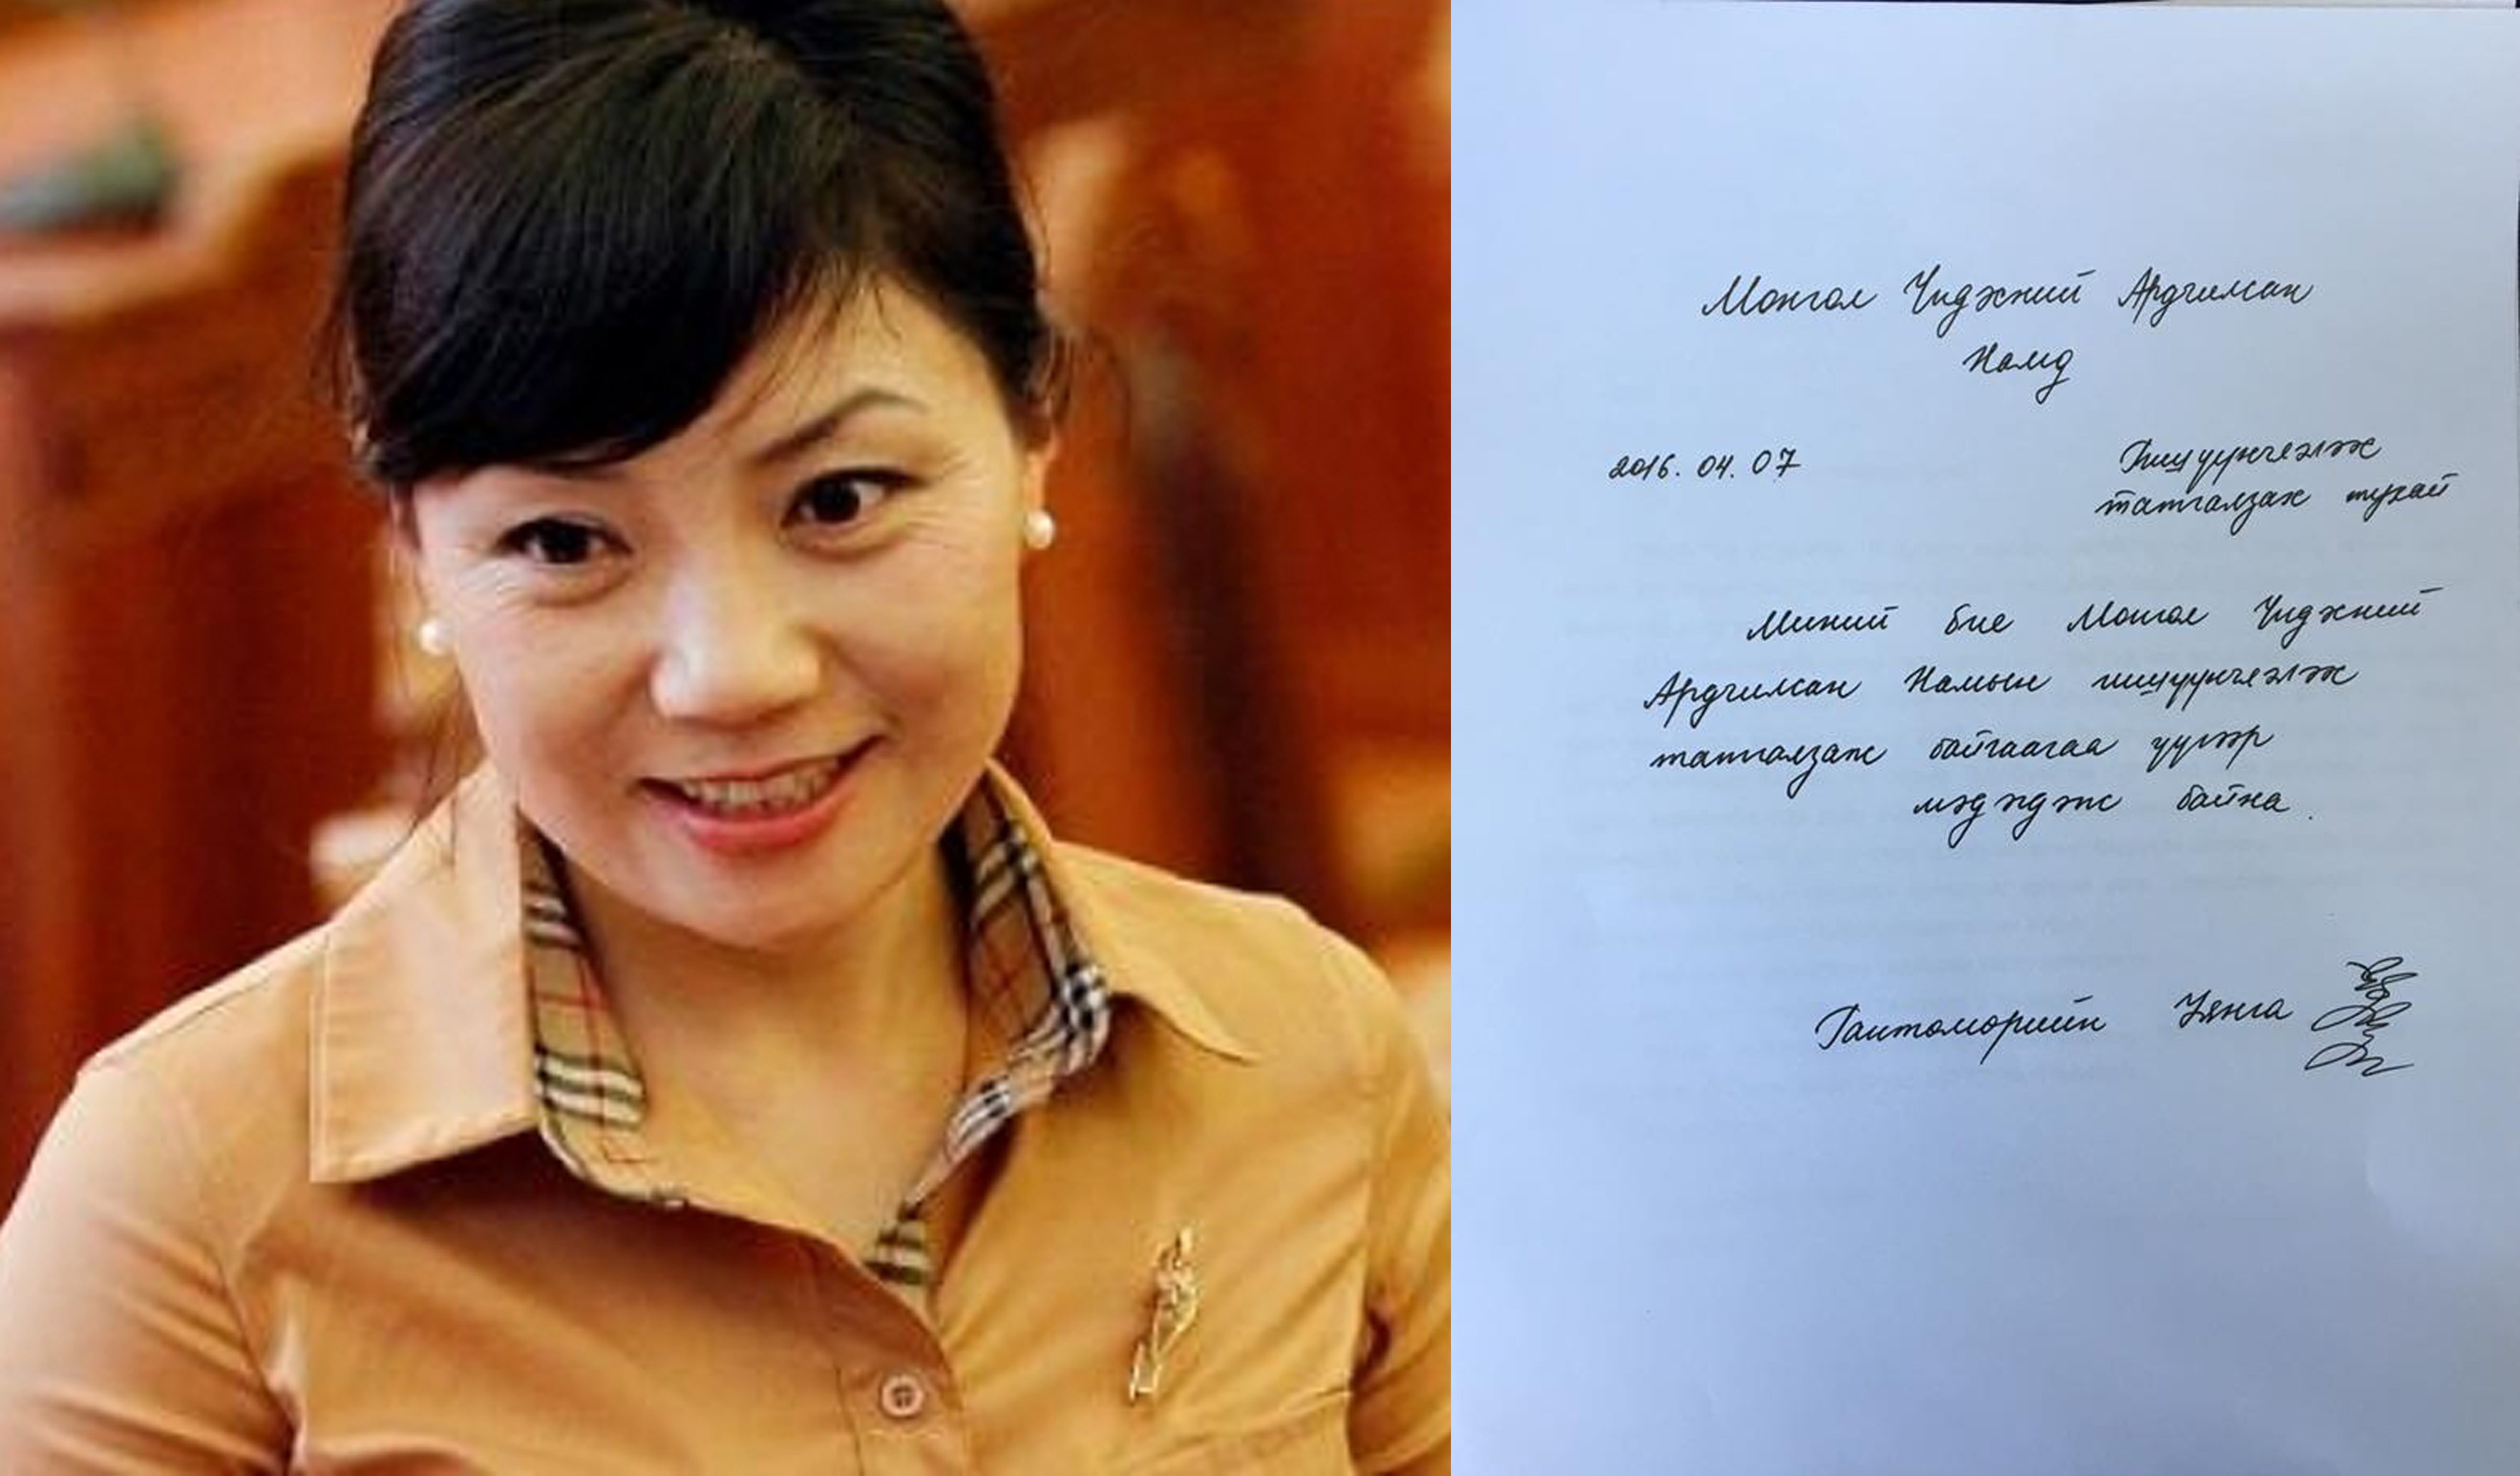 Монгол Үндэсний Ардчилсан
Намд
2016. 04. 07
Гишүүнчлэлээс
татгалзах тухай
Миний бие Монгол Үндэсний
Ардчилсан Намын гишүүнчлэлээс
татгалзаж байгаагаа үүгээр
мэдэгдэж байна.
Гантөмөрийн Уянга